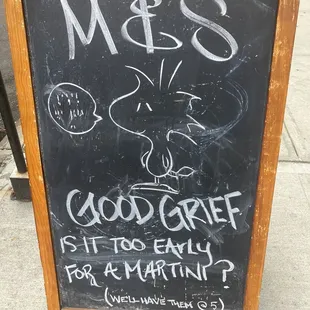 M & S
GOOD GRIEF
IS IT TOO EARLY
FOR A MARTINI?
(WE'LL HAVE THEM @ 5)